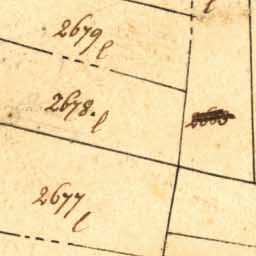 2679
l
2678.
l
2677
l